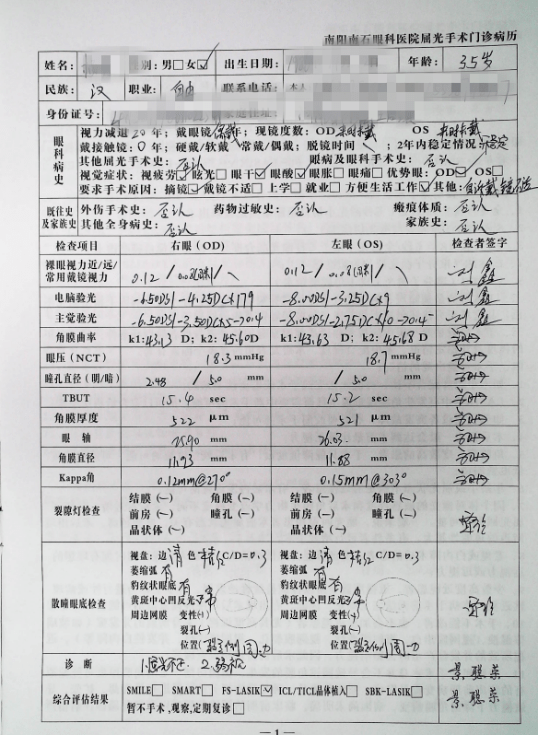 南阳南石眼科医院屈光手术门诊病历
姓名： 别：男□女☑ 出生日期： 年龄：35岁
民族：汉 职业：自由 联系电话：
身份证号：
眼科病史
视力减退20年；戴眼镜 年；现镜度数：OD OS
戴接触镜：0年；硬戴/软戴 常戴/偶戴；脱镜时间\；2年内稳定情况：稳定
其他屈光手术史：否认 眼病及眼科手术史：否认
视觉症状：视疲劳☑眩光□眼干☑眼酸☑眼胀□眼痛□ 优势眼：OD☑OS□
要求手术原因：摘镜☑戴镜不适□上学□就业□方便生活工作☑其他：
既往史及家族史
外伤手术史：否认 药物过敏史：否认 瘢痕体质：否认
其他全身病史：否认 家族史：否认
检查项目 右眼(OD) 左眼(OS) 检查者签字
裸眼视力近/远/常用戴镜视力 0.12/ /\ 0.12/ /\ 刘鑫
电脑验光 -6.50DS/-4.25DC×179 -8.00DS/-3.25DC×9 刘鑫
主觉验光 -6.50DS/-3.50DC×5→0.4 -8.00DS/-2.75DC×10→0.4 刘鑫
角膜曲率 k1:43.13 D; k2:45.60D k1:43.63 D; k2:45.68 D
眼压(NCT) 18.3mmHg 18.7mmHg
瞳孔直径(明/暗) 2.48 /5.0 mm /5.0 mm
TBUT 15.4 sec 15.2 sec
角膜厚度 522 μm 521 μm
眼 轴 25.90 mm 26.03 mm
角膜直径 11.93 mm 11.88 mm
Kappa角 0.12mm@270° 0.15mm@303°
裂隙灯检查
结膜(-) 角膜(-) 结膜(-) 角膜(-)
前房(-) 瞳孔(-) 前房(-) 瞳孔(-)
晶状体(-) 晶状体(-)
散瞳眼底检查
视盘：边清 色 C/D=0.3 视盘：边清 色 C/D=0.3
萎缩弧 有 萎缩弧 有
豹纹状眼底 有 豹纹状眼底 有
黄斑中心凹反光 黄斑中心凹反光
周边网膜 变性(-) 周边网膜 变性(-)
裂孔(-) 裂孔(-)
位置( 位置(
诊 断 1.屈光不正 2.弱视 景聪荣
综合评估结果
SMILE□ SMART□ FS-LASIK☑ ICL/TICL晶体植入□ SBK-LASIK□ 景聪荣
暂不手术,观察,定期复诊□
— 1 —